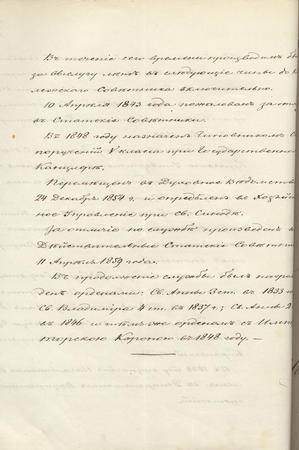 Въ теченіе сего времени производимъ былъ
за выслугу лѣтъ въ слѣдующіе чины до Кол-
лежскаго Совѣтника включительно.
10 Апрѣля 1843 года пожалованъ за отл
въ Статскіе Совѣтники.
Въ 1848 году назначенъ Чиновникомъ
порученій V класса при Государственной
Канцеляріи.
Перемѣщенъ въ Духовное Вѣдомство
24 Декабря 1854 г. и опредѣленъ въ Хозяйствен
ное Управленіе при Св. Синодѣ.
За отличіе по службѣ произведенъ въ
Дѣйствительные Статскіе Совѣтники
11 Апрѣля 1859 года.
Въ продолженіе службы былъ награж
денъ орденами: Св. Анны 3 ст. въ 1833 и
Св. Владиміра 4 ст. въ 1837 г.; Св. Анны 2
въ 1846 и тѣмъ же орденомъ съ Импера
торскою Короною въ 1848 году. —